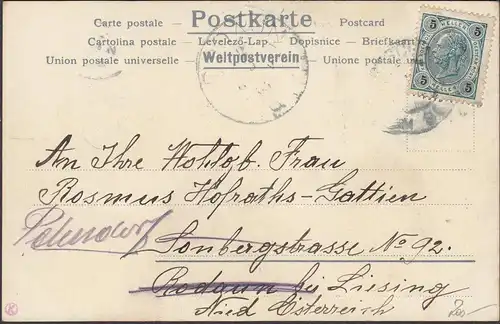 Carte postale Postkarte Postcard
Cartolina postale – Levelező-Lap. – Dopisnice – Briefkaart
Union postale universelle Weltpostverein Unione postale
5 HELLER 5
5 5
An Ihre Wohlgb. Frau
Rosmus Hofraths-Gattien
Sonbergstrasse No 92.
Rodaun bei Liesing
Nied Österreich